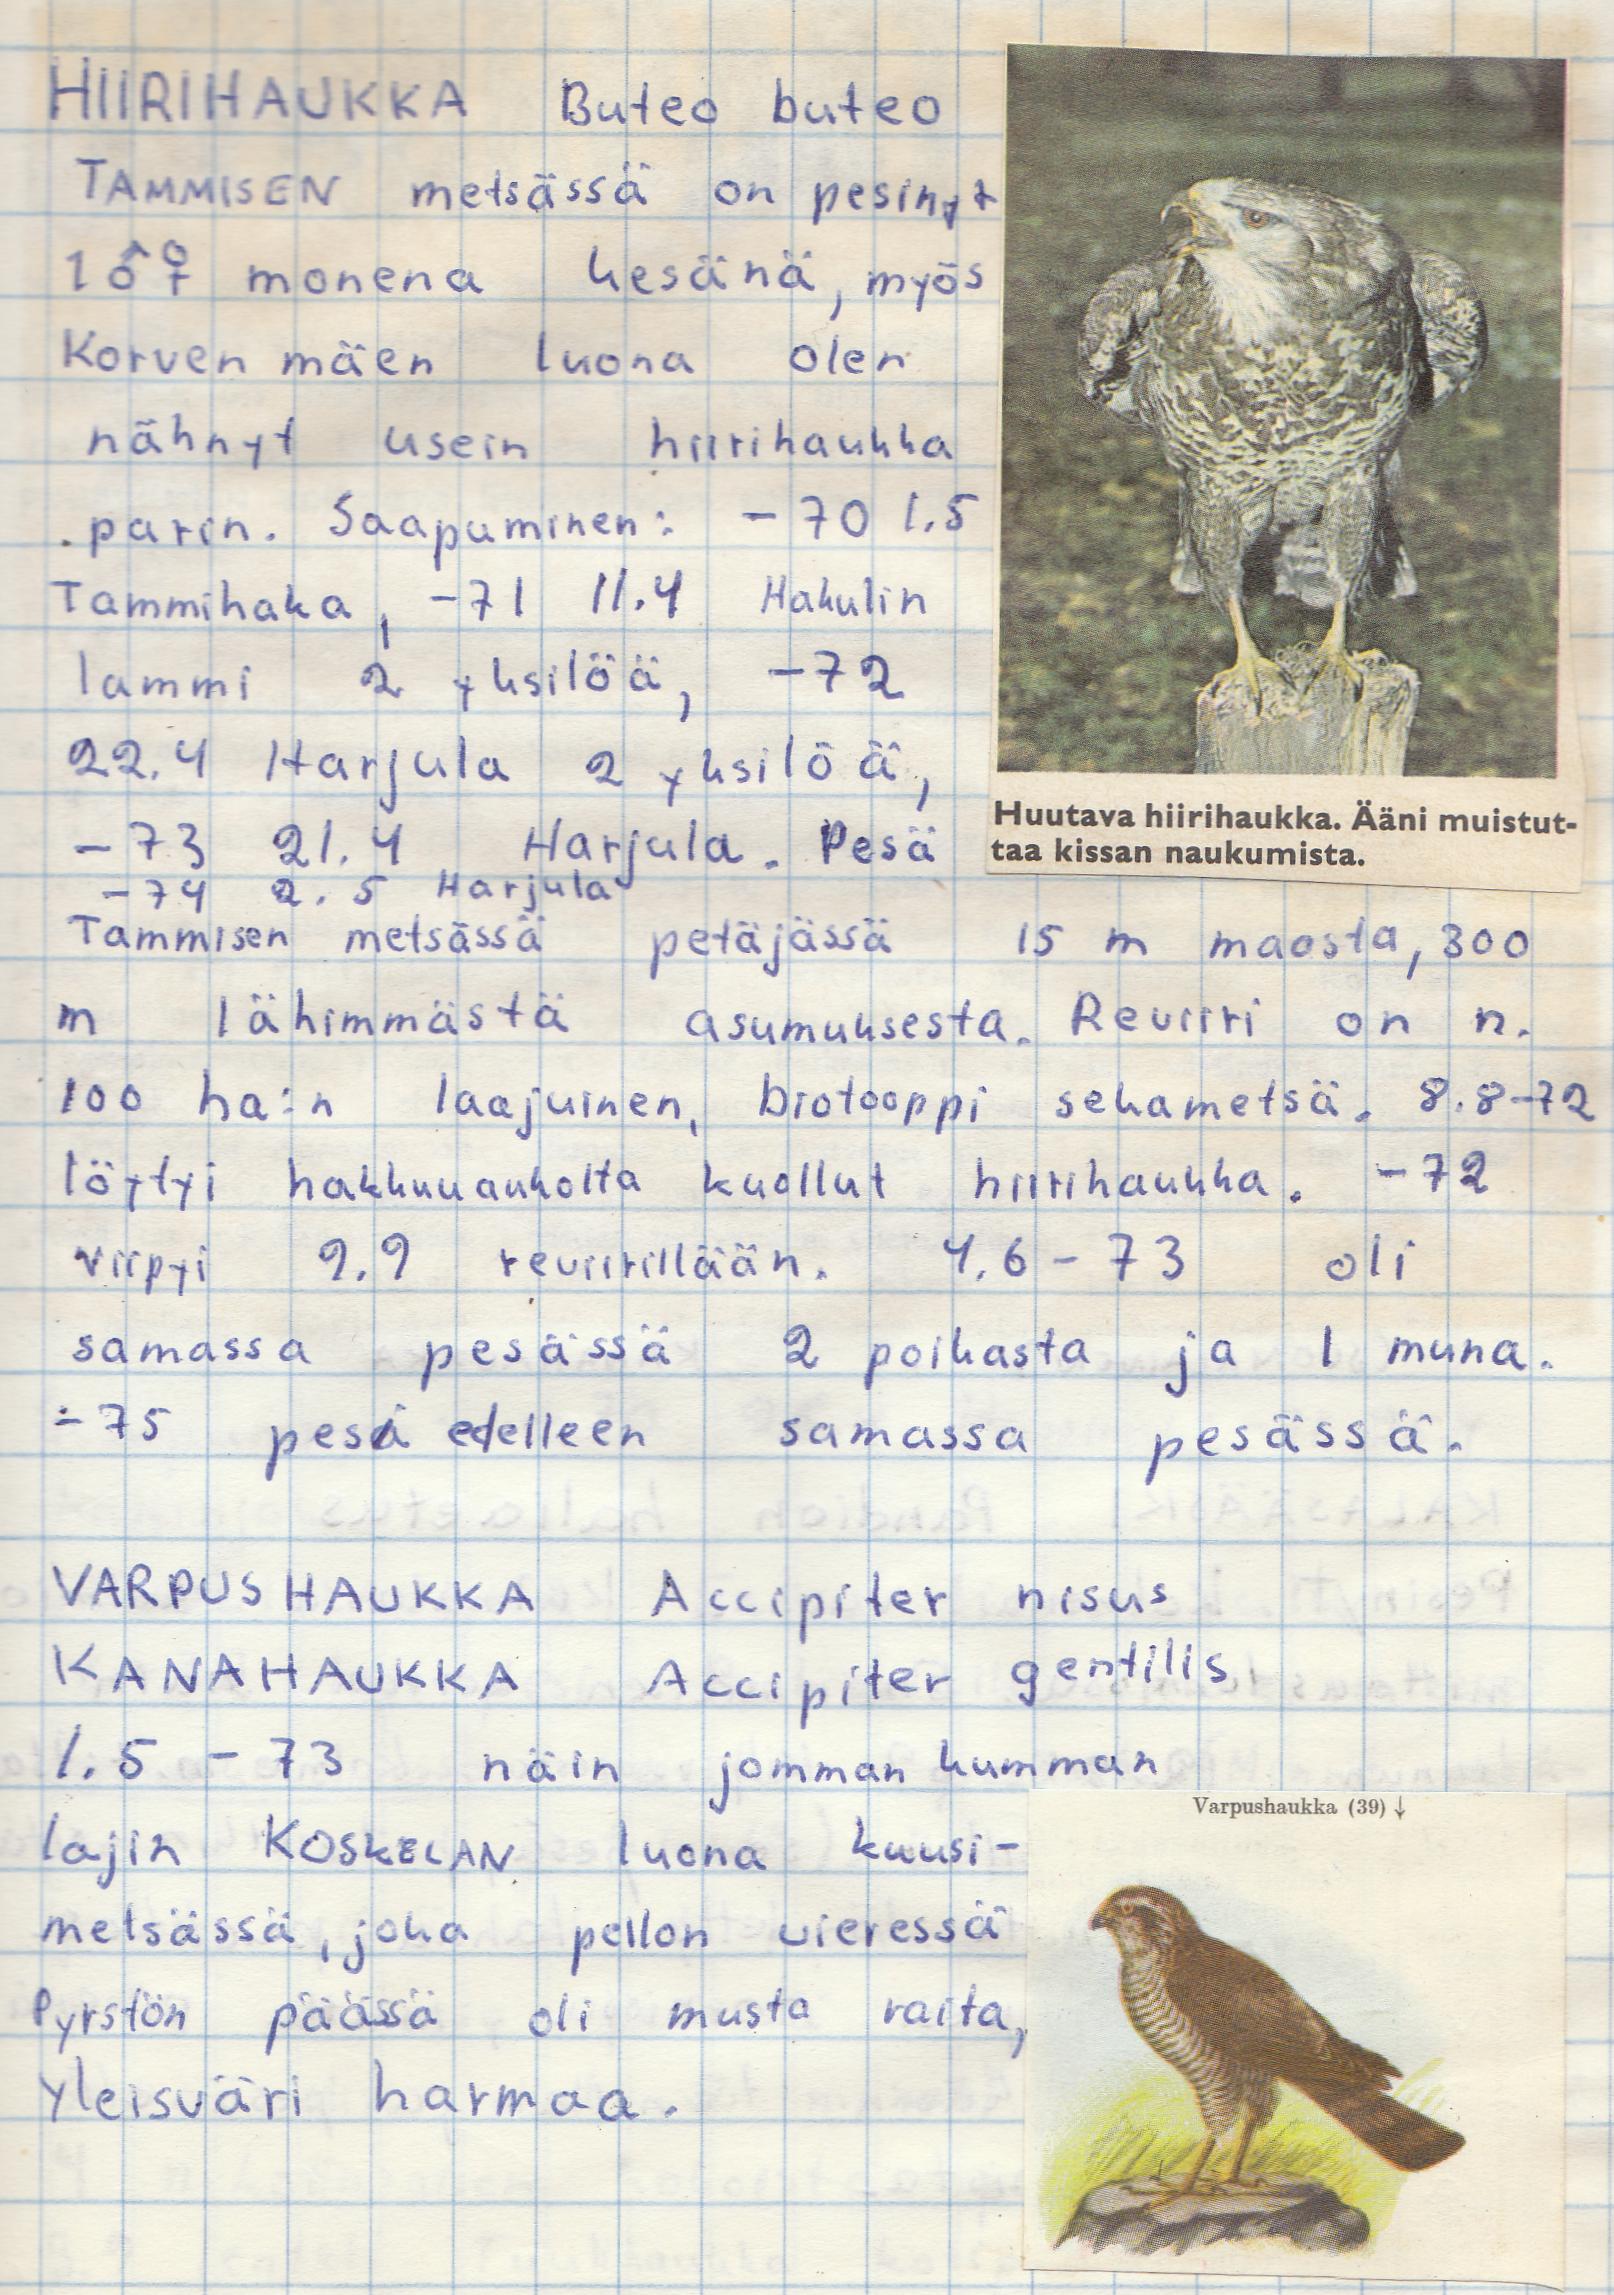 HIIRIHAUKKA Buteo buteo
TAMMISEN metsässä on pesinyt
1♂♀ monena kesänä, myös
Korvenmäen luona olen
nähnyt usein hiirihaukka
parin. Saapuminen: -70 1.5
Tammihaka, -71 11.4 Hakulin
lammi 2 yksilöä, -72
22.4 Harjula 2 yksilöä,
-73 21.4 Harjula. Pesä
-74 2.5 Harjula
Tammisen metsässä petäjässä 15 m maasta, 300
m lähimmästä asumuksesta. Reviiri on n.
100 ha:n laajuinen, biotooppi sekametsä. 8.8-72
löytyi hakkuuaukolta kuollut hiirihaukka. -72
viipyi 9.9 reviirillään. 4.6-73 oli
samassa pesässä 2 poikasta ja 1 muna.
-75 pesi edelleen samassa pesässä.
Huutava hiirihaukka. Ääni muistut-
taa kissan naukumista.
VARPUSHAUKKA Accipiter nisus
KANAHAUKKA Accipiter gentilis
1.5 -73 näin jommankumman
lajin KOSKELAN luona kuusi-
metsässä, joka pellon vieressä
Pyrstön päässä oli musta raita,
yleisväri harmaa.
Varpushaukka (39) ↓